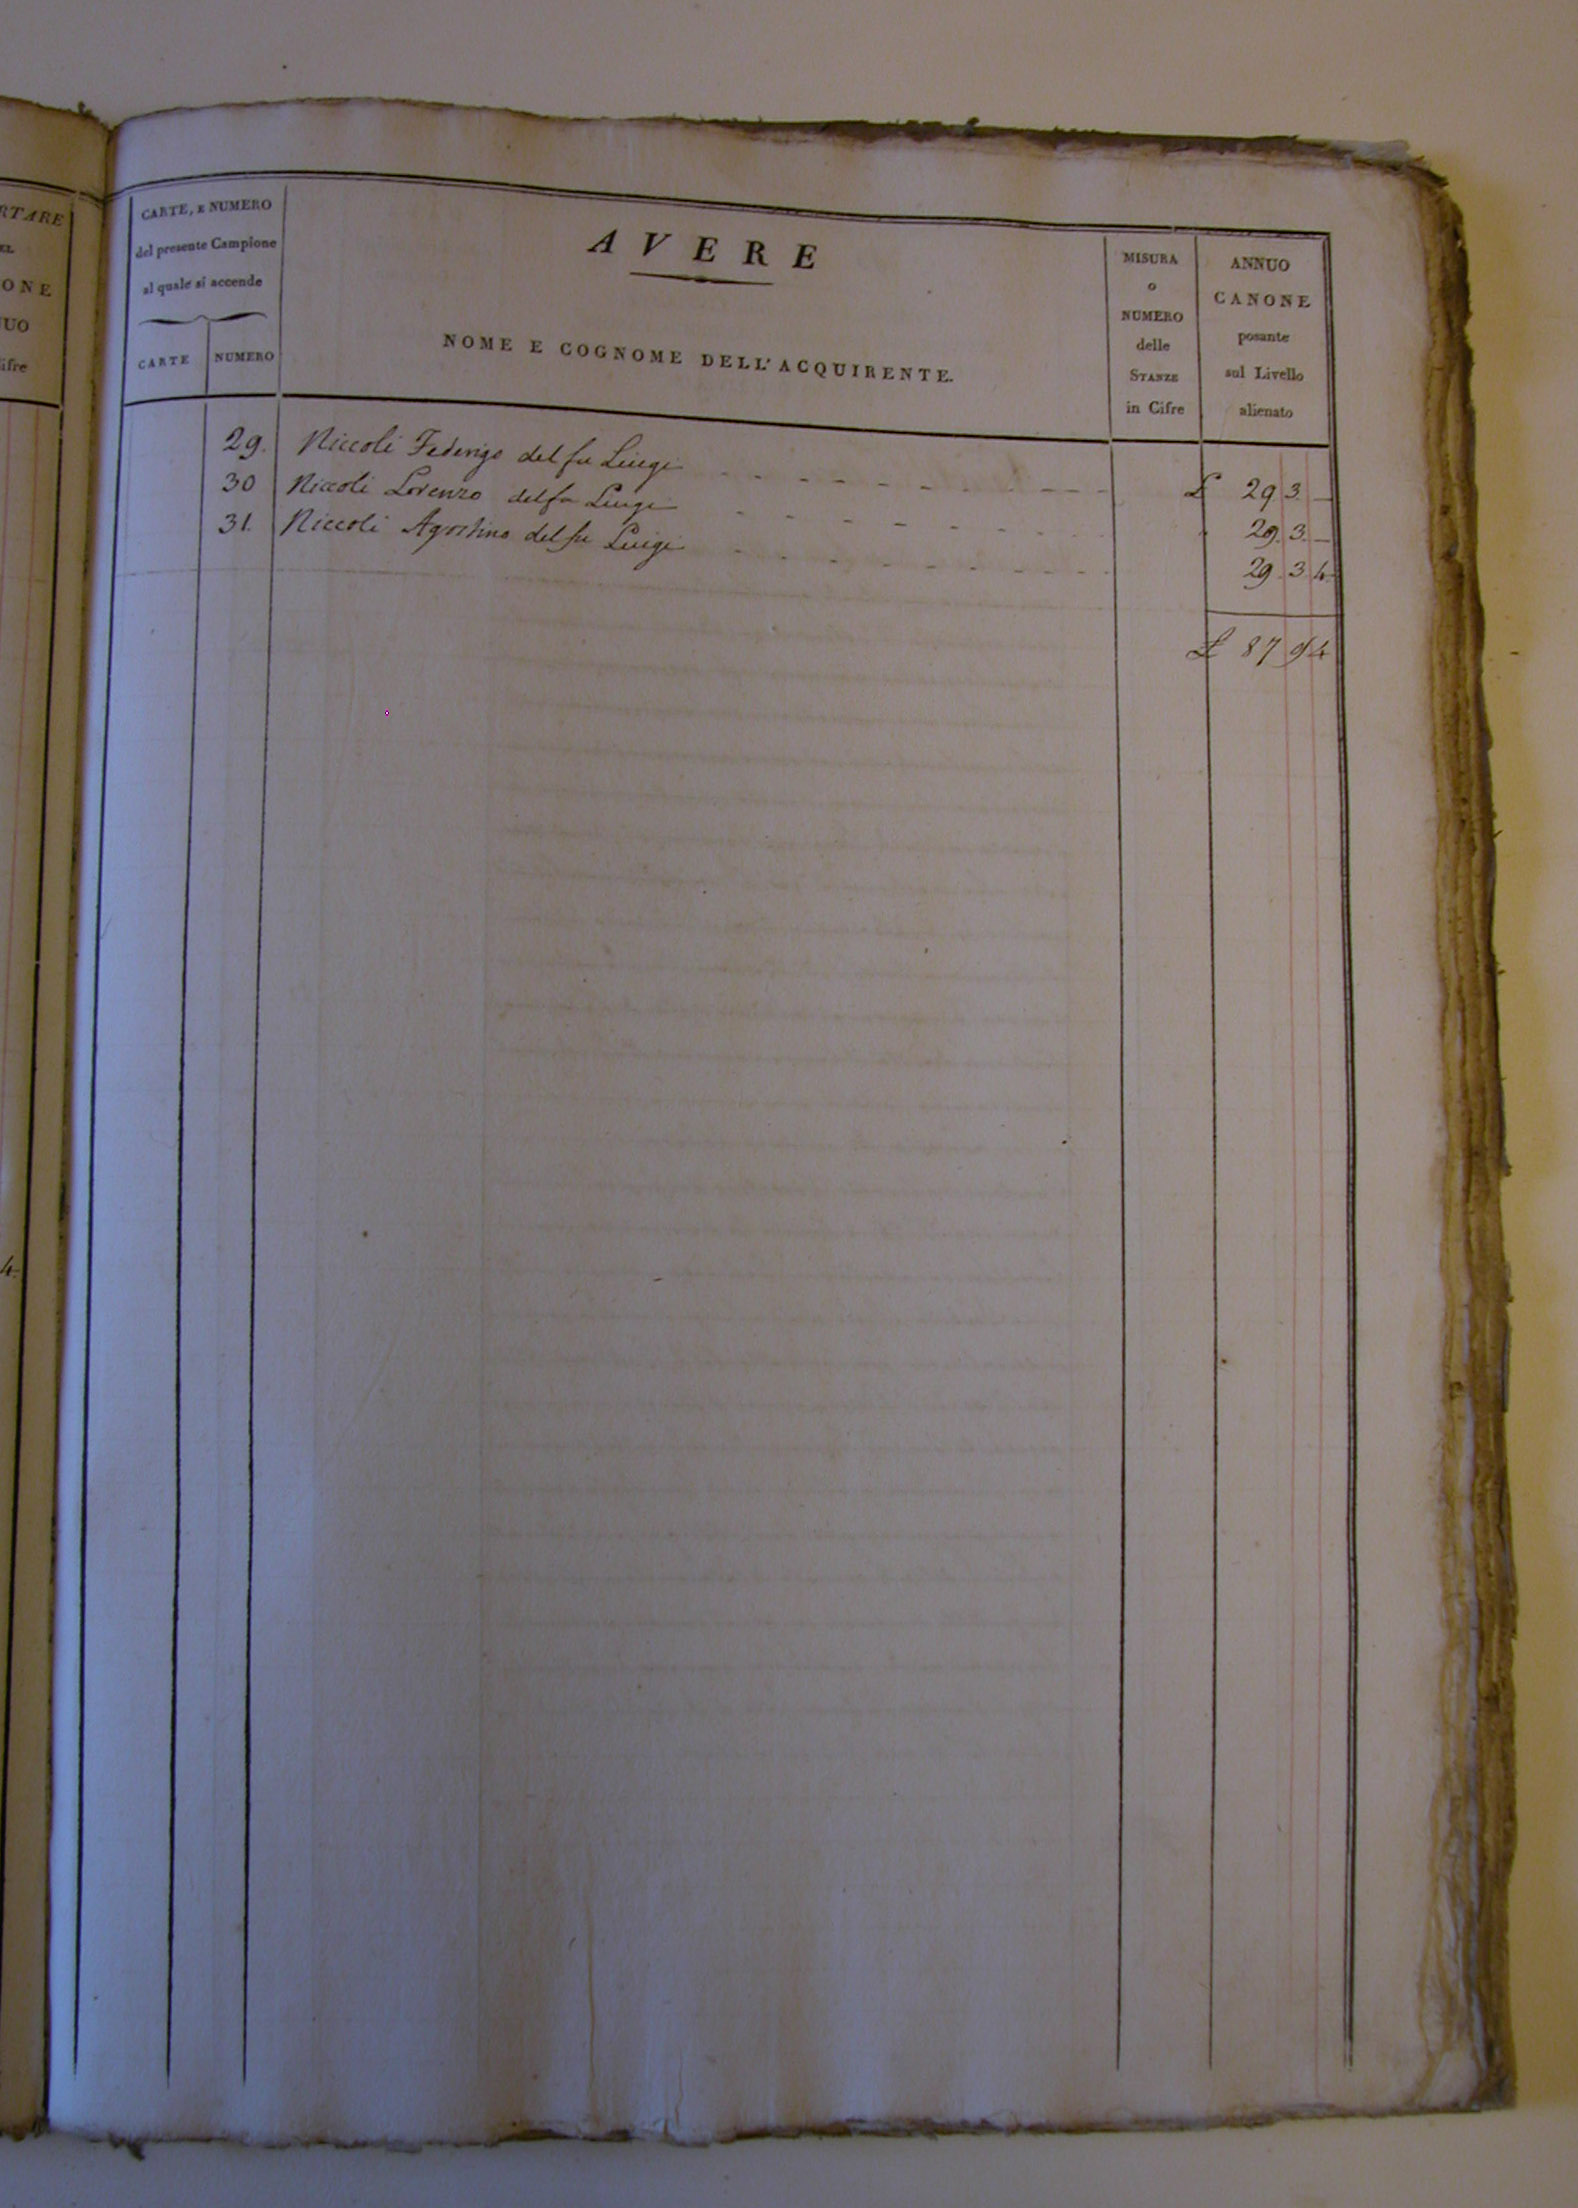 RTARE
EL
ONE
UO
ifre
4.
CARTE, E NUMERO
del presente Campione
al quale si accende
CARTE
NUMERO
AVERE
NOME E COGNOME DELL' ACQUIRENTE.
MISURA
o
NUMERO
delle
STANZE
in Cifre
ANNUO
CANONE
posante
sul Livello
alienato
29. Niccoli Federigo del fu Luigi - - - - - - - - - - £ 29. 3. —
30 Niccoli Lorenzo del fu Luigi - - - - - - - - - 29. 3. —
31. Niccoli Agostino del fu Luigi - - - - - - - - - 29. 3. 4.
£ 87 9 4